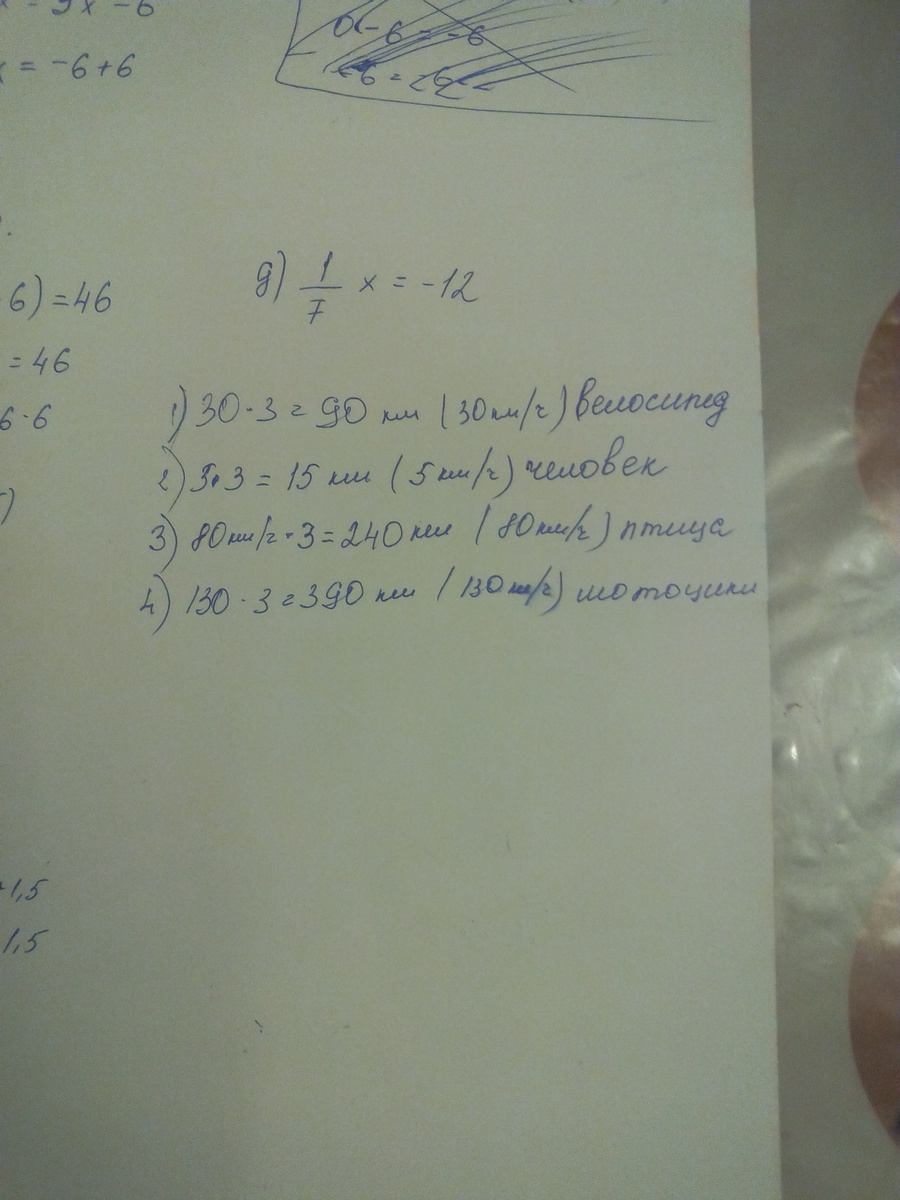 x = -6+6
6) = 46
= 46
6·6
д) 1/7 x = -12
1) 30·3 = 90 км (30км/ч) велосипед
2) 5·3 = 15 км (5км/ч) человек
3) 80км/ч·3=240км (80км/ч) птица
4) 130·3=390 км (130км/ч) мотоцикл
+1,5
1,5